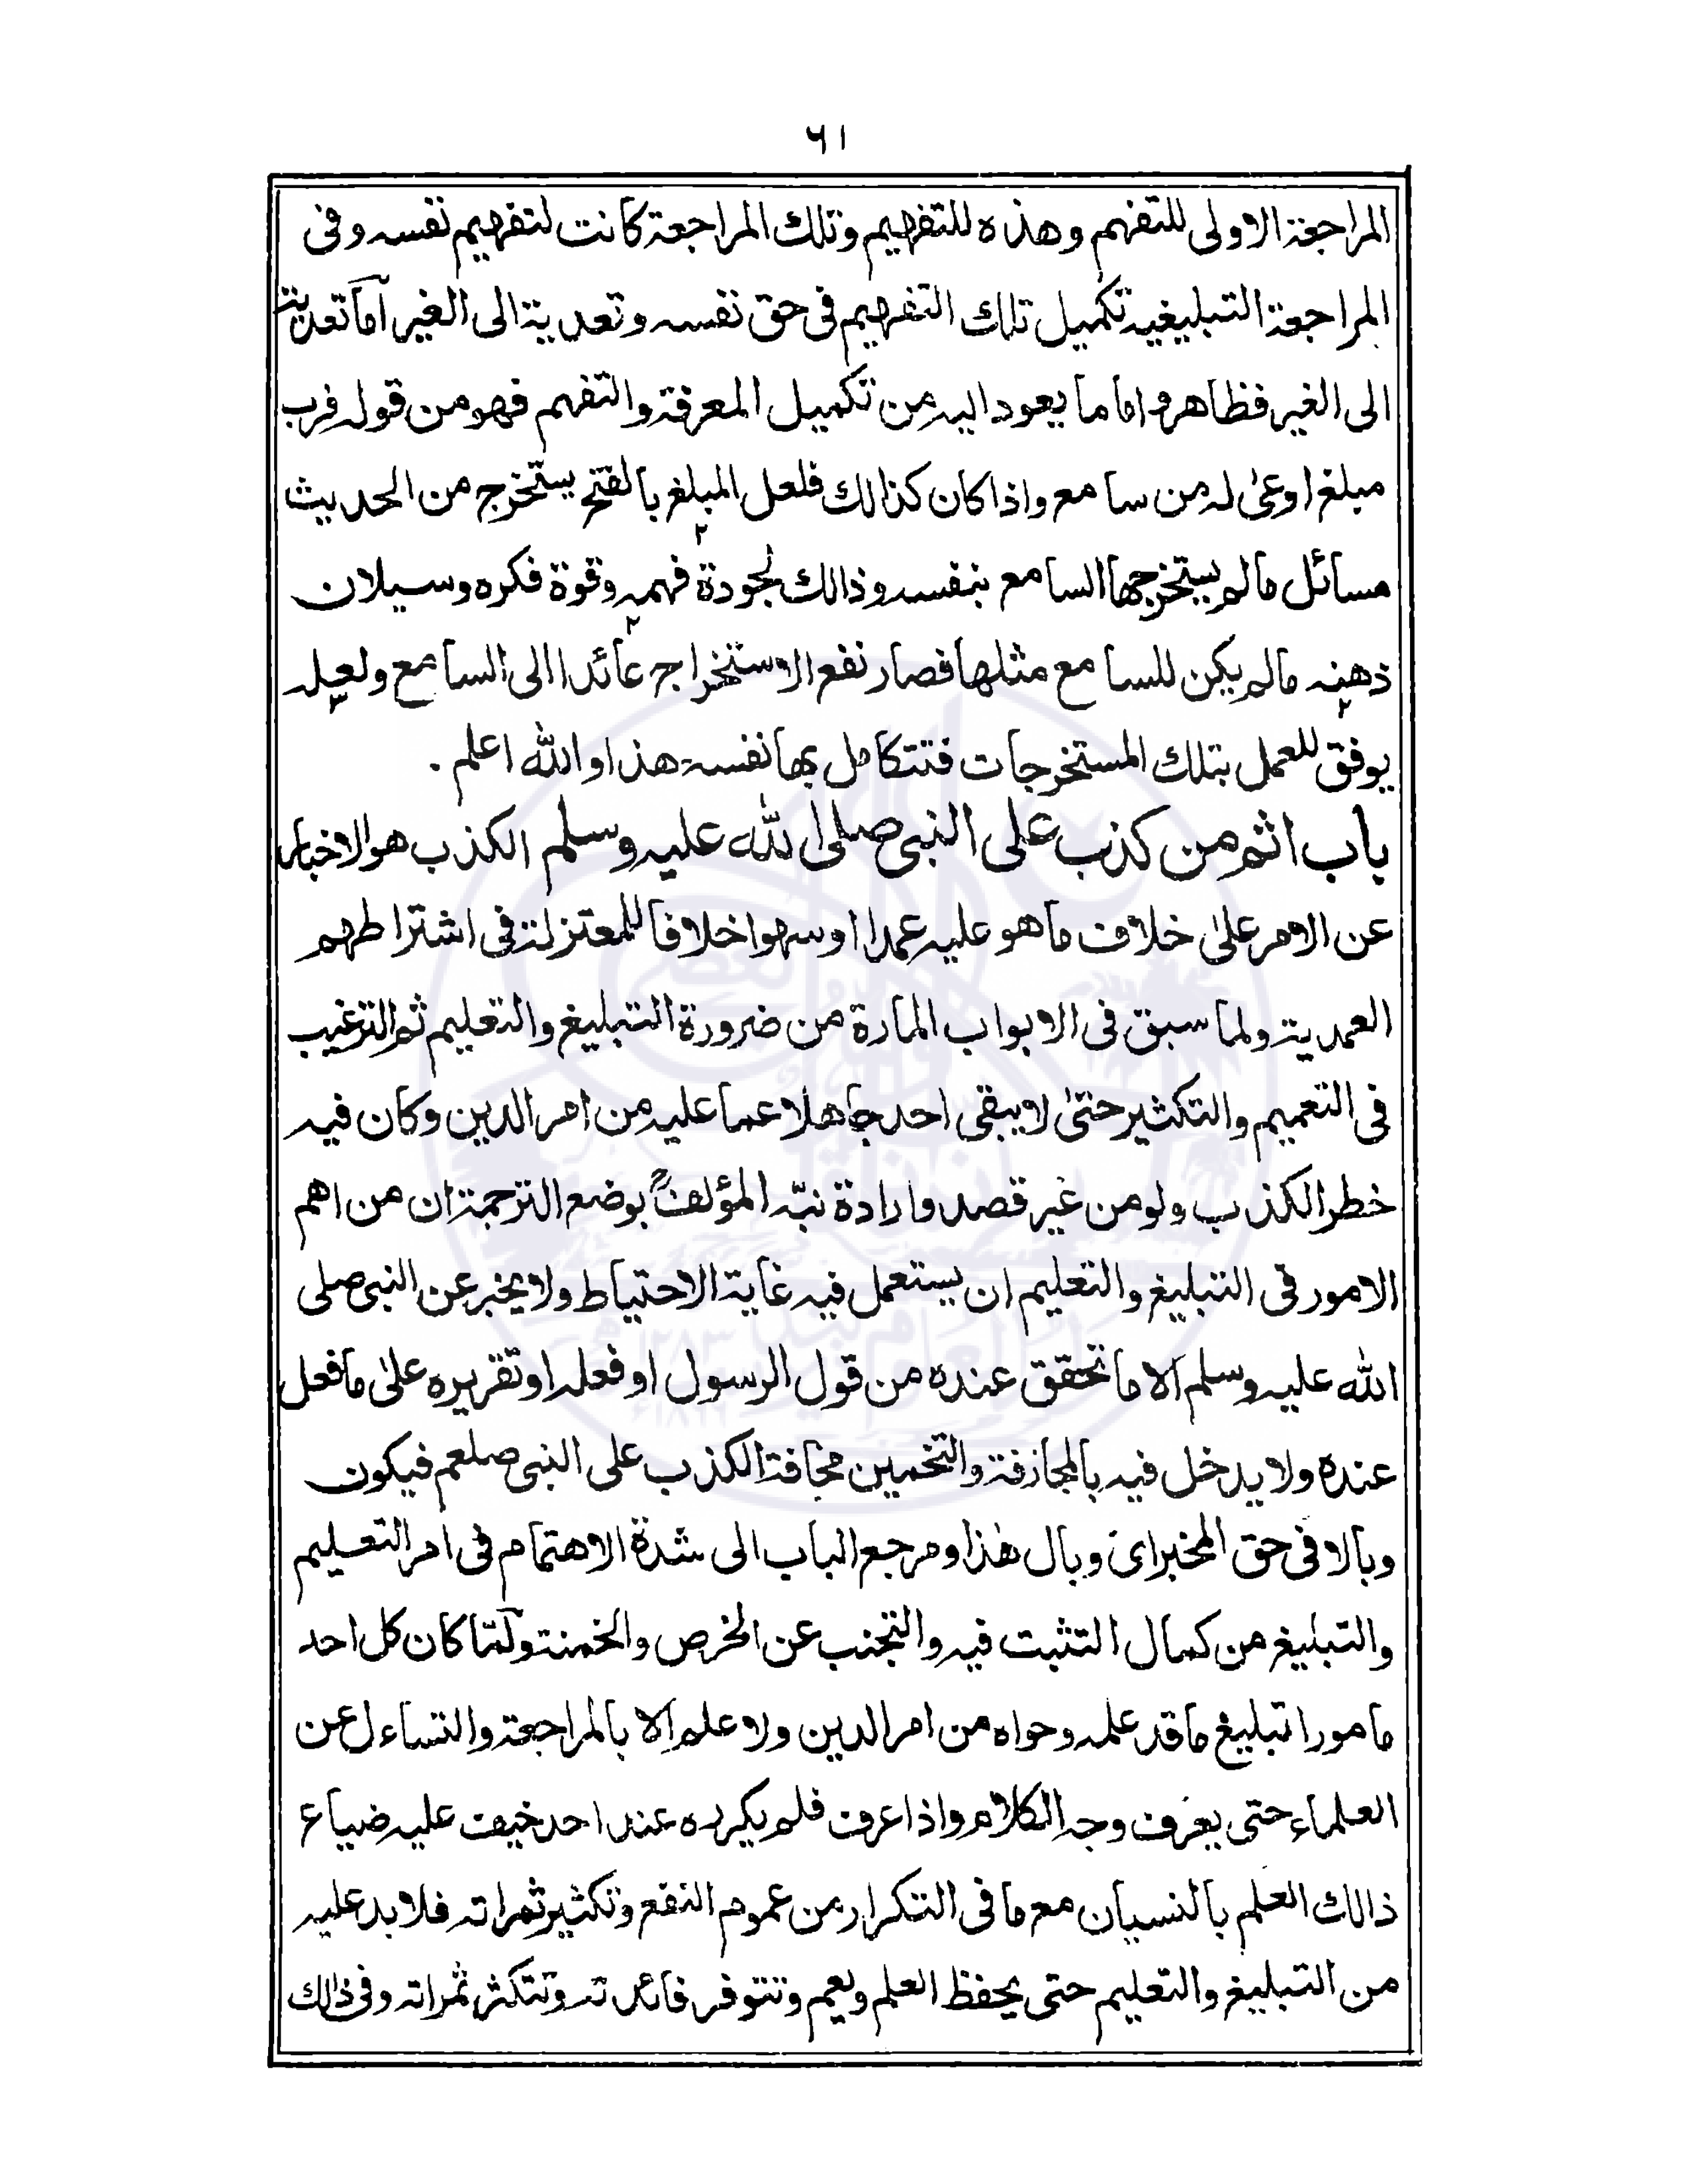 ٦١
المراجعة الاولى للتفهم وهذه للتفهيم وتلك المراجعة كانت لتفهيم نفسه وفى
المراجعة التبليغيه تكميل تلك التفهيم فى حق نفسه وتعدية الى الغير اما تعديته
الى الغير فظاهر واما ما يعود اليه من تكميل المعرفة والتفهم فهو من قوله فرب
مبلغ اوعىٰ له من سامع واذا كان كذالك فلعل المبلغ بالفتح يستخرج من الحديث
مسائل مالم يستخرجها السامع بنفسه وذالك لجودة فهمه وقوة فكره وسيلان
ذهنه مالم يكن للسامع مثلها فصار نفع الاستخراج عائدا الى السامع ولعله
يوفق للعمل بتلك المستخرجات فتتكامل بها نفسه هذا والله اعلم .
باب اثم من كذب على النبى صلى الله عليه وسلم الكذب هو الاخبار
عن الامر علىٰ خلاف ما هو عليه عمدا او سهوا خلافا للمعتزلة فى اشتراطهم
العمدية ولما سبق فى الابواب المارة من ضرورة التبليغ والتعليم ثم الترغيب
فى التعميم والتكثير حتىٰ لا يبقى احد جاهلا عما عليه من امر الدين وكان فيه
خطر الكذب ولو من غير قصد وارادة نبّه المؤلف بوضع الترجمة ان من اهم
الامور فى التبليغ والتعليم ان يستعمل فيه غاية الاحتياط ولا يخبر عن النبى صلى
الله عليه وسلم الا ما تحقق عنده من قول الرسول او فعله او تقريره علىٰ ما فعل
عنده ولا يدخل فيه بالمجازفة والتخمين مخافة الكذب على النبى صلعم فيكون
وبالا فى حق المخبر اى وبال هٰذا ومرجع الباب الى شدة الاهتمام فى امر التعليم
والتبليغ من كمال التثبت فيه والتجنب عن الخرص والخمنة ولمّا كان كل احد
مامورا تبليغ ما قد علمه وحواه من امر الدين ولا علم الا بالمراجعة والتساءل عن
العلماء حتى يعرف وجه الكلام واذا عرف فلم يكرره عند احد خيف عليه ضياع
ذالك العلم بالنسيان مع ما فى التكرار من عموم النفع وتكثير ثمراته فلا بد عليه
من التبليغ والتعليم حتى يحفظ العلم ويعم وتتوفر فائدته وتتكثر ثمراته وفى ذالك